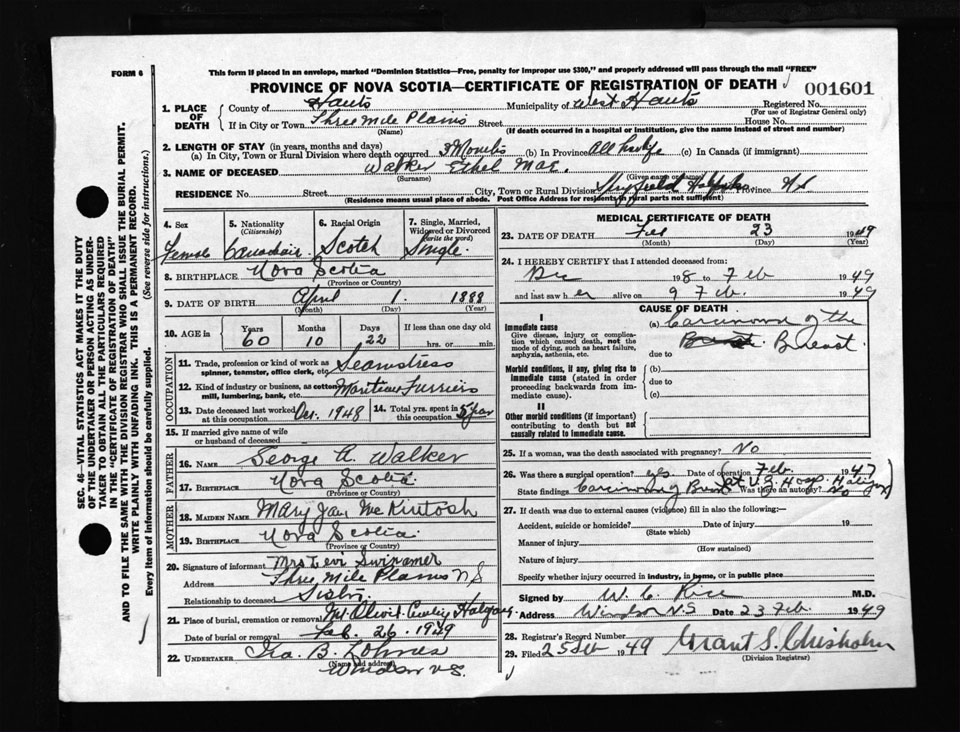 FORM 6
This form if placed in an envelope, marked "Dominion Statistics—Free, penalty for improper use $300," and properly addressed will pass through the mail "FREE"
PROVINCE OF NOVA SCOTIA—CERTIFICATE OF REGISTRATION OF DEATH
001601
1. PLACE OF DEATH
County of Hants Municipality of West Hants Registered No.
(For use of Registrar General only)
If in City or Town Three Mile Plains Street House No.
(Name) (If death occurred in a hospital or institution, give the name instead of street and number)
2. LENGTH OF STAY (in years, months and days)
(a) In City, Town or Rural Division where death occurred 3 Months (b) In Province All her life (c) In Canada (if immigrant)
3. NAME OF DECEASED Walker Ethel Mae
(Surname) (Given name or names)
RESIDENCE No. Street City, Town or Rural Division Halifax Province N S
(Residence means usual place of abode. Post Office Address for residents in rural parts not sufficient)
4. Sex
Female
5. Nationality
(Citizenship)
Canadian
6. Racial Origin
Scotch
7. Single, Married, Widowed or Divorced
(write the word)
Single
8. BIRTHPLACE Nova Scotia
(Province or Country)
9. DATE OF BIRTH April 1 1888
(Month) (Day) (Year)
10. AGE in Years Months Days If less than one day old
60 10 22 hrs. or min.
OCCUPATION
11. Trade, profession or kind of work as
spinner, teamster, office clerk, etc. Seamstress
12. Kind of industry or business, as cotton
mill, lumbering, bank, etc. Furriers
13. Date deceased last worked
at this occupation Dec. 1948
14. Total yrs. spent in
this occupation 5 year
15. If married give name of wife
or husband of deceased
FATHER
16. NAME George A. Walker
17. BIRTHPLACE Nova Scotia
(Province or Country)
MOTHER
18. MAIDEN NAME Mary Jane McKintosh
19. BIRTHPLACE Nova Scotia
(Province or Country)
20. Signature of informant Mrs Levi Swinamer
Address Three Mile Plains N S
Relationship to deceased Sister
21. Place of burial, cremation or removal Mt. Olivet
Date of burial or removal Feb. 26. 1949
22. UNDERTAKER Ira B. Lohnes
(Name and address)
Windsor N.S.
MEDICAL CERTIFICATE OF DEATH
23. DATE OF DEATH Feb 23 1949
(Month) (Day) (Year)
24. I HEREBY CERTIFY that I attended deceased from:
Dec 1948 to Feb 1949
and last saw her alive on 9 Feb. 1949
CAUSE OF DEATH
I
Immediate cause
Give disease, injury or complication which caused death, not the mode of dying, such as heart failure, asphyxia, asthenia, etc.
(a) Carcinoma of the
Breast.
due to
Morbid conditions, if any, giving rise to immediate cause (stated in order proceeding backwards from immediate cause).
(b)
due to
(c)
II
Other morbid conditions (if important) contributing to death but not causally related to immediate cause.
25. If a woman, was the death associated with pregnancy? No
26. Was there a surgical operation? yes. Date of operation Feb. 1947
(at V.G. Hosp. Halifax)
State findings Carcinoma of Breast Was there an autopsy? No
27. If death was due to external causes (violence) fill in also the following:—
Accident, suicide or homicide? Date of injury 19
(State which)
Manner of injury
(How sustained)
Nature of injury
Specify whether injury occurred in industry, in home, or in public place
Signed by W. C. Rice M.D.
Address Windsor N S Date 23 Feb. 1949
28. Registrar's Record Number
29. Filed 25 Feb 1949 Grant S. Chisholm
(Division Registrar)
SEC. 46—VITAL STATISTICS ACT MAKES IT THE DUTY
OF THE UNDERTAKER OR PERSON ACTING AS UNDERTAKER TO OBTAIN ALL THE PARTICULARS REQUIRED
IN THE "CERTIFICATE OF REGISTRATION OF DEATH"
AND TO FILE THE SAME WITH THE DIVISION REGISTRAR WHO SHALL ISSUE THE BURIAL PERMIT.
WRITE PLAINLY WITH UNFADING INK. THIS IS A PERMANENT RECORD.
Every item of information should be carefully supplied. (See reverse side for instructions.)